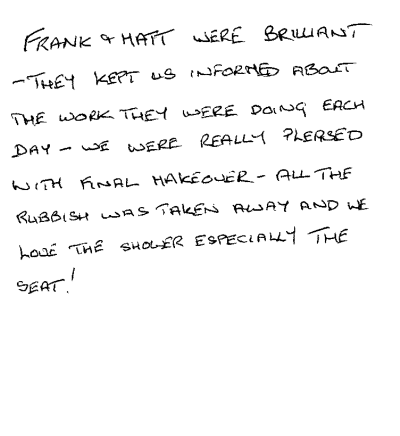 FRANK & MATT WERE BRILLIANT
- THEY KEPT US INFORMED ABOUT
THE WORK THEY WERE DOING EACH
DAY - WE WERE REALLY PLEASED
WITH FINAL MAKEOVER - ALL THE
RUBBISH WAS TAKEN AWAY AND WE
LOVE THE SHOWER ESPECIALLY THE
SEAT!